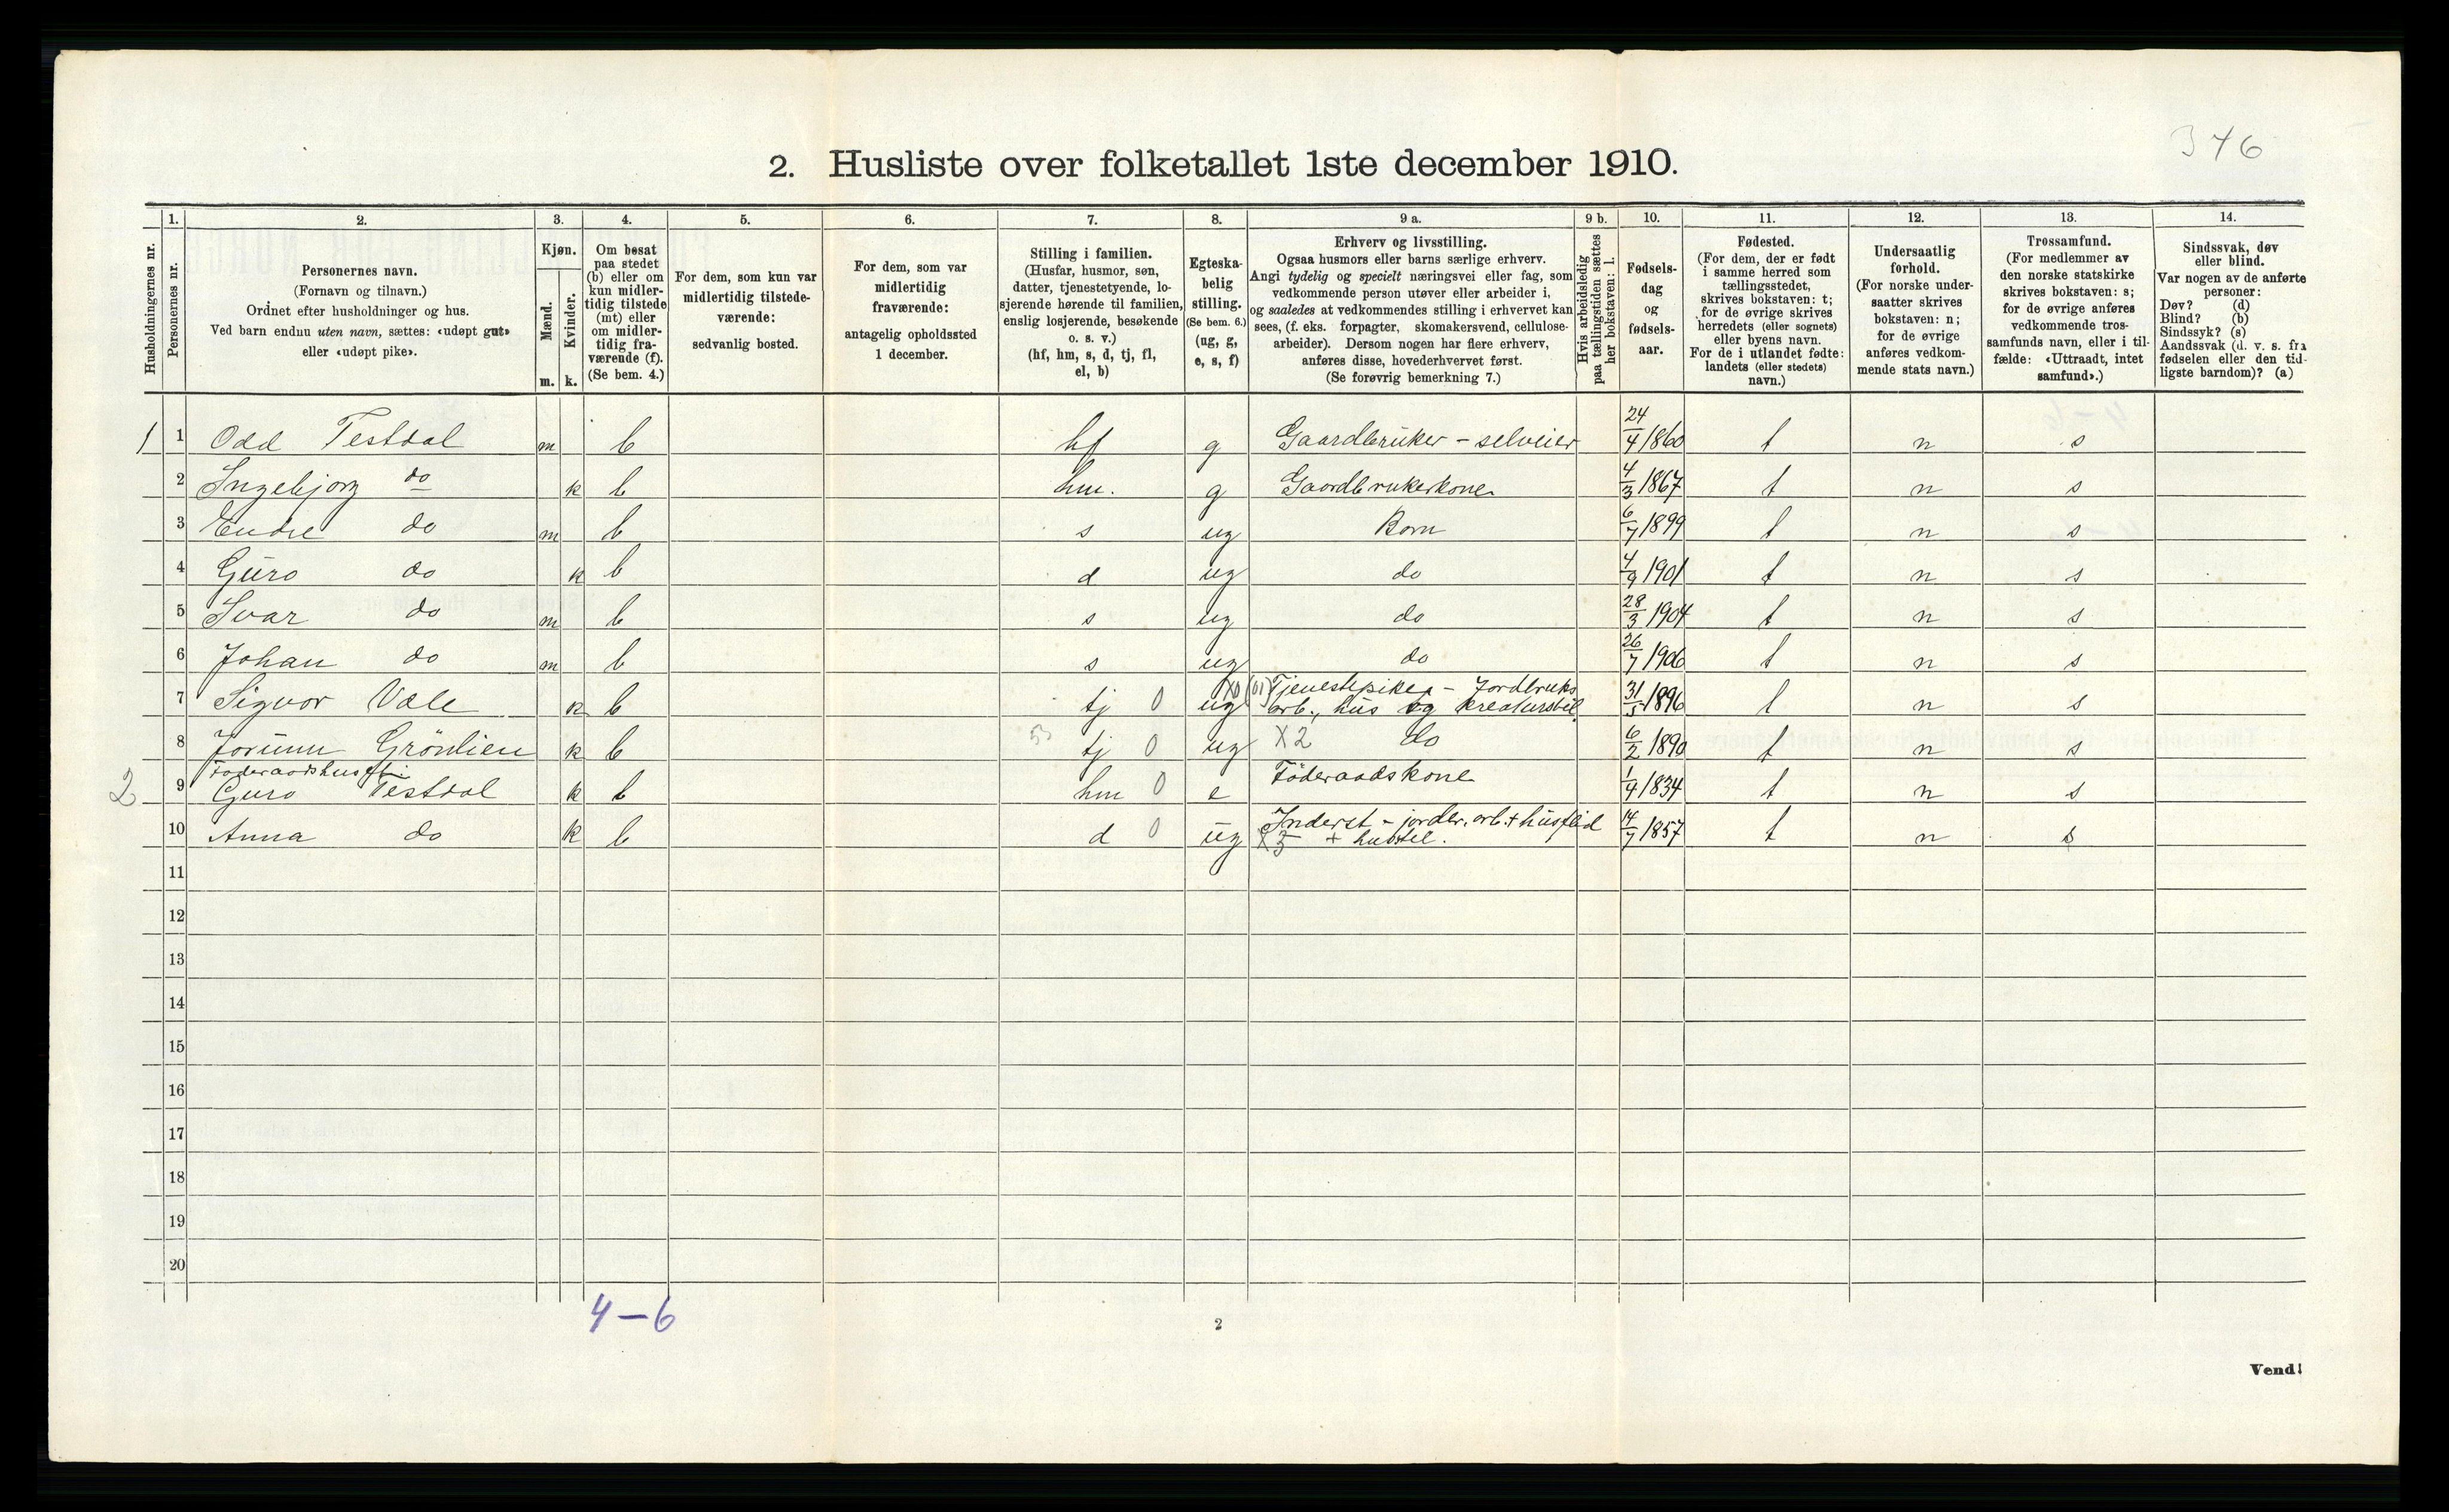 346
2. Husliste over folketallet 1ste december 1910.
Husholdningernes nr.
1.
Personernes nr.
2.
Personernes navn.
(Fornavn og tilnavn.)
Ordnet efter husholdninger og hus.
Ved barn endnu uten navn, sættes: «udøpt gut»
eller «udøpt pike».
3.
Kjøn.
Mænd.
Kvinder.
m. k.
4.
Om bosat
paa stedet
(b) eller om
kun midler-
tidig tilstede
(mt) eller
om midler-
tidig fra-
værende (f).
(Se bem. 4.)
5.
For dem, som kun var
midlertidig tilstede-
værende:
sedvanlig bosted.
6.
For dem, som var
midlertidig
fraværende:
antagelig opholdssted
1 december.
7.
Stilling i familien.
(Husfar, husmor, søn,
datter, tjenestetyende, lo-
sjerende hørende til familien,
enslig losjerende, besøkende
o. s. v.)
(hf, hm, s, d, tj, fl,
el, b)
8.
Egteska-
belig
stilling.
(Se bem. 6.)
(ug, g,
e, s, f)
9 a.
Erhverv og livsstilling.
Ogsaa husmors eller barns særlige erhverv.
Angi tydelig og specielt næringsvei eller fag, som
vedkommende person utøver eller arbeider i,
og saaledes at vedkommendes stilling i erhvervet kan
sees, (f. eks. forpagter, skomakersvend, cellulose-
arbeider). Dersom nogen har flere erhverv,
anføres disse, hovederhvervet først.
(Se forøvrig bemerkning 7.)
9 b.
Hvis arbeidsledig
paa tællingstiden sættes
her bokstaven: l.
10.
Fødsels-
dag
og
fødsels-
aar.
11.
Fødested.
(For dem, der er født
i samme herred som
tællingsstedet,
skrives bokstaven: t;
for de øvrige skrives
herredets (eller sognets)
eller byens navn.
For de i utlandet fødte:
landets (eller stedets)
navn.)
12.
Undersaatlig
forhold.
(For norske under-
saatter skrives
bokstaven: n;
for de øvrige
anføres vedkom-
mende stats navn.)
13.
Trossamfund.
(For medlemmer av
den norske statskirke
skrives bokstaven: s;
for de øvrige anføres
vedkommende tros-
samfunds navn, eller i til-
fælde: «Uttraadt, intet
samfund».)
14.
Sindssvak, døv
eller blind.
Var nogen av de anførte
personer:
Døv? (d)
Blind? (b)
Sindssyk? (s)
Aandssvak (d. v. s. fra
fødselen eller den tid-
ligste barndom)? (a)
1 1 Odd Testdal m b hf g Gaardbruker - selveier 24/4 1860 t n s
2 Ingebjorg do k b hm. g Gaardbrukerkone 4/3 1867 t n s
3 Endre do m b s ug Born 6/7 1899 t n s
4 Guro do k b d ug do 4/9 1901 t n s
5 Ivar do m b s ug do 28/3 1904 t n s
6 Johan do m b s ug do 26/7 1906 t n s
7 Sigvor Vale k b tj 0 ug Tjenestepike - Jordbruks
arb., hus og kreaturstel 31/5 1896 t n s
8 Jorunn Grönlien k b tj 0 ug X2 do 6/2 1890 t n s
2 9 Guro Testdal k b hm 0 e Föderaadskone 1/4 1834 t n s
10 Anna do k b d 0 ug Inderst - jordbr. arb. + husflid
X3 + husstel. 14/7 1857 t n s
11
12
13
14
15
16
17
18
19
20
4-6
2
Vend!